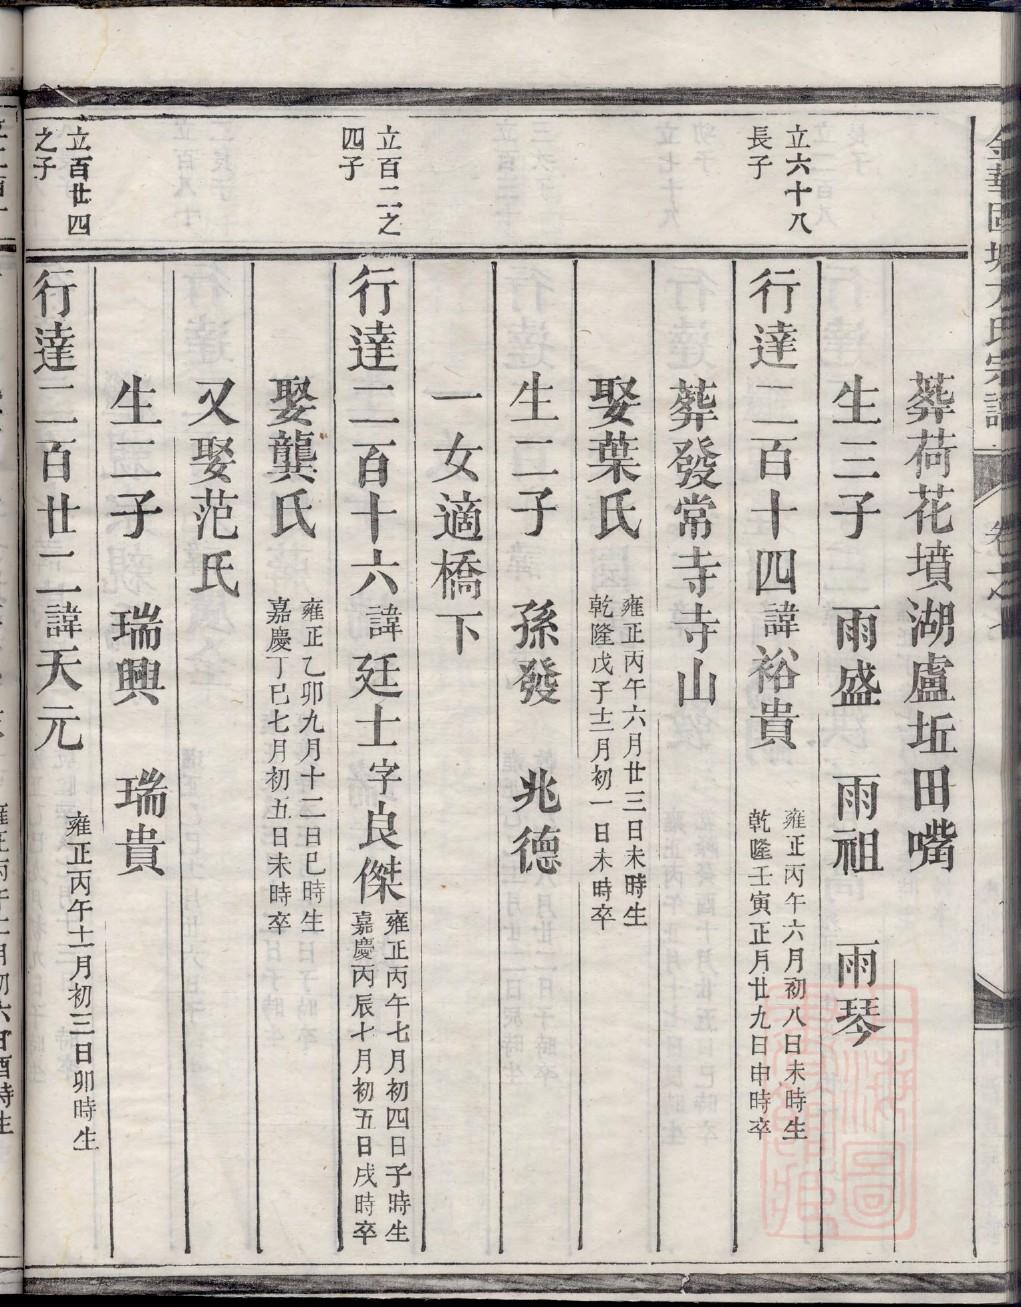 葬荷花墳湖盧坵田嘴
生三子 雨盛 雨祖 雨琴
立六十八
長子
行達二百十四諱裕貴
雍正丙午六月初八日未時生
乾隆壬寅正月廿九日申時卒
葬發常寺寺山
娶葉氏
雍正丙午六月廿三日未時生
乾隆戊子十二月初一日未時卒
生二子 孫發 兆德
一女適橋下
立百二之
四子
行達二百十六諱廷士字良傑
雍正丙午七月初四日子時生
嘉慶丙辰七月初五日戌時卒
娶龔氏
雍正乙卯九月十二日巳時生
嘉慶丁巳七月初五日未時卒
又娶范氏
生二子 瑞興 瑞貴
立百廿四
之子
行達二百廿二諱天元
雍正丙午十一月初三日卯時生